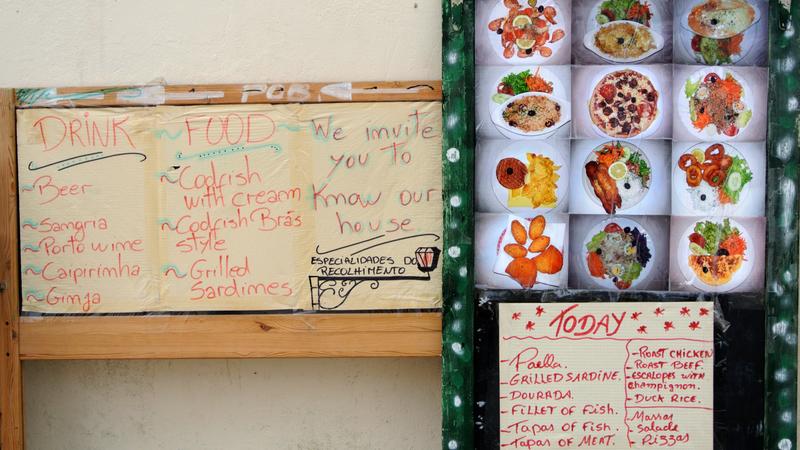 PCB
DRINK
~Beer
~Sangria
~Porto wime
~Caipirimha
~Gimja
~FOOD~
~Codfish
with cream
~Codfish Brás
style
~Grilled
Sardimes
We imvite
you To
Kmow our
house
ESPECIALIDADES DO
RECOLHIMENTO
TODAY
-Paella.
-GRILLED SARDINE.
-DOURADA.
-FILLET OF FISH.
-Tapas of FISH.
-Tapas of MEAT.
-ROAST CHICKEN
-ROAST BEEF.
-ESCALOPES WITH
champignon.
-DUCK RICE.
-Massas
-Salade
-Pizzas